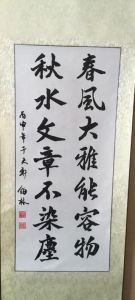 春風大雅能容物
秋水文章不染塵
丙申年于天邨